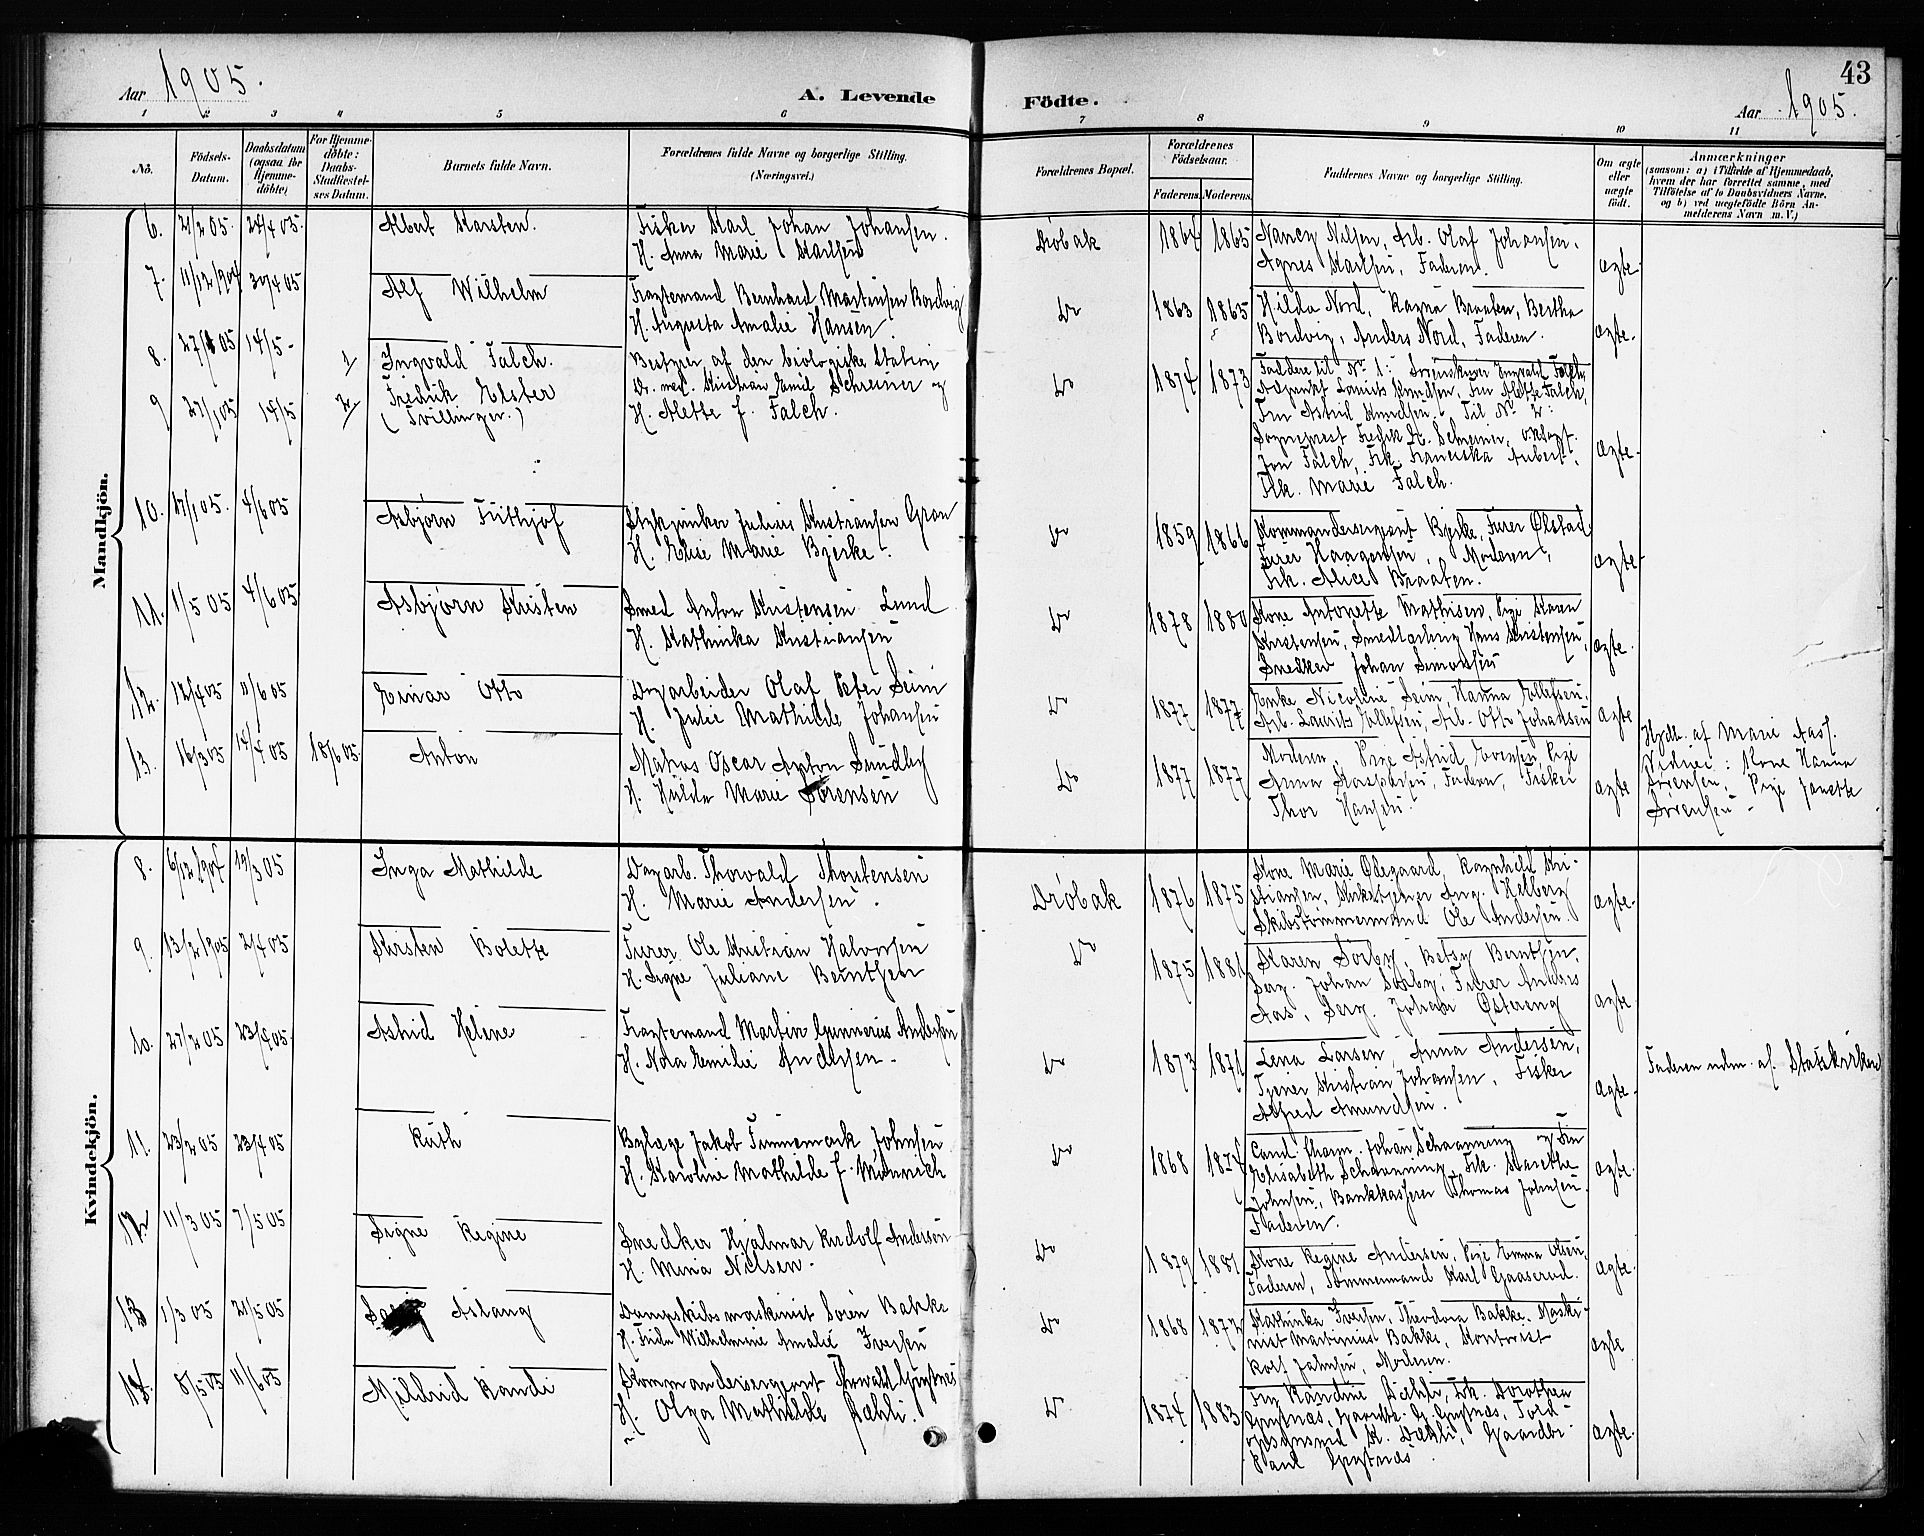 43
Aar 1905.
A. Levende Födte.
Aar 1905.
1 2 3 4 5 6 7 8 9 10 11
No.
Födsels-Datum.
Daabsdatum (ogsaa for Hjemme-döbte)
For Hjemme-döbte: Daabs-Stadfæstel-ses Datum.
Barnets fulde Navn.
Forældrenes fulde Navne og borgerlige Stilling. (Næringsvei.)
Forældrenes Bopæl.
Forældrenes Födselsaar.
Faderens. Moderens.
Faddernes Navne og borgerlige Stilling.
Om ægte eller uægte födt.
Anmærkninger
(saasom: a) i Tilfælde af Hjemmedaab,
hvem der har forrettet samme, med
Tilföielse af to Daabsvidners Navne,
og b) ved uægtefödte Börn An-
melderens Navn m. V.)
Mandkjön.
6. 21/2 05. 24/4 05. Albert Karsten. Fisker Karl Johan Johansen. Drøbak 1864 1865 Nancy Nilsen, Arb. Olaf Johansen,
H. Anna Marie Karlsen Agnes Karlsen, Faderen. ægte
7. 11/12 1904 30/4 05 Alf Wilhelm Fragtemand Bernhard Martinsen Bordvig Do 1863 1865 Hilda Nord, Ragna Braaten, Bertha
H. Augusta Amalie Hansen. Bordvig, Anders Nord, Faderen. ægte.
8. 27/1 05 14/5 - 1/ Ingvald Falch. Bestyrer af den biologiske Station Do 1874 1873 Faddere til No 1: Ingvald Falch,
9 27/1 05 14/5 2/ Fredrik Elster Dr. med. Kristian Emil Schreiner og Laurits Knudsen, Fru Alette Falch,
(Tvillinger.) H. Alette f. Falch. Fru Astrid Knudsen. Til No 2:
Sogneprest Fredrik Schreiner,
Jon Falch, Frk. Franciska Aubert,
Frk. Marie Falch. ægte.
10. 17/1 05. 4/6 05 Asbjørn Frithjof Julius Kristiansen Gran Do 1859 1866 Kommandersergent Bjerke, Furer Ølstad
H. Elise Marie Bjerke. Furer Haagensen, Moderen,
Frk. Alice Braaten. ægte
11. 1/5 05 4/6 05 Asbjørn Kristen Smed Anton Kristensen Lund Do 1878 1880 Kone Antonette Mathisen, Pige Karen
H. Kathinka Kristiansen Kristensen, Smedlærling Hans Kristensen,
Snedker Johan Simonsen ægte.
12. 12/4 05 11/6 05 Einar Otto Dagarbeider Olaf Peter Seim Do 1877 1877 Enke Nicoline Seim, Hanna Ellefsen,
H. Julie Mathilde Johansen Arb. Laurits Ellefsen, Arb. Otto Johansen ægte
13. 16/3 05 14/4 05 18/6 05. Anton Matros Oscar Anton Sundby Do 1877 1877 Moderen, Pige Astrid Evensen, Pige
H. Hilda Marie Sørensen Anna Kaspersen, Faderen, Fisker
Thor Hansen. ægte
Hjdb. af Marie Aas.
Vidner: Kone Hanna
Sørensen, Pige Janette
Sørensen -
Kvindekjön.
8. 6/12 1904 19/3 05 Inga Mathilde Dagarb. Thorvald Thorstensen Drøbak 1876 1875 Kone Marie Ødegaard, Ragnhild Kri-
H. Marie Andersen. stiansen, Aug. Helberg
Skibstømmermand Ole Andersen ægte.
9. 13/2 1905 2/4 05 Kirsten Bolette Furer Ole Kristian Halvorsen Do 1875 1881 Karen Sørby, Betsy Berntsen,
H. Signe Juliane Berntsen Serg. Johan Sørby, Furer Anders
Aas, Serg. Johan Østereng ægte.
10. 27/2 05 23/4 05. Astrid Helene Fragtemand Martin Gunnerius Andersen Do 1873 1871 Lena Larsen, Anna Andersen,
H. Nora Emilie Andersen - Tjener Kristian Johansen, Fisker
Alfred Amundsen. ægte.
Faderen udm. af Statskirken
11. 23/2 05 23/4 05 Ruth Bylæge Jakob Finnemark Johnsen Do 1868 1874 Cand. Pharm. Johan Schaanning og Fru
H. Karoline Mathilde f. Münnich Elisabeth Schaanning, Frk. Marethe
Johnsen, Bankkasserer Thomas Johnsen.
Faderen. ægte.
12 11/3 05 7/5 05 Signe Regine Snedker Hjalmar Rudolf Andersen Do 1879 1881 Kone Regine Andersen, Pige Emma Olsen,
H. Mina Nilsen. Faderen, Tømmermand Karl Gaaserud. ægte.
13 1/3 05 21/5 05 Aslaug Dampskibsmaskinist Soren Bakke Do 1868 1872 Kathinka Iversen, Theodora Bakke, Maski-
H. Frida Wilhelmine Amalie Iversen nist Martinius Bakke, Kontorist
Rolf Johnsen, Moderen. ægte
14. 8/5 05 11/6 05 Mildrid Randi Kommandersergent Thorvald Grytnes Do 1874 1883 Fru Randine Dæhli, Frk. Dorothea
H. Olga Mathilde Dæhli. Grytnæs, Gaardbr. G. Grytnæs, Told-
opsynsmd K. Dæhli, Gaardbr.
Paul Grytnæs. ægte.